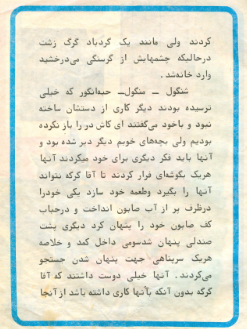 کردند ولی مانند یک گردباد گرگ زشت
درحالیکه چشمهایش از گرسنگی می‌درخشید
وارد خانه‌شد.
شنگول ــ منگول‌ــ حبه‌انگور که خیلی
ترسیده بودند دیگر کاری از دستشان ساخته
نبود و باخود می‌گفتند ای کاش در را باز نکرده
بودیم ولی بچه‌های خوبم دیگر دیر شده بود و
آنها باید فکر دیگری برای خود میکردند آنها
هریک بگوشه‌ای فرار کردند تا آقا گرگه نتواند
آنها را بگیرد وطعمه خود سازد یکی خودرا
درظرف پر از آب صابون انداخت و درحباب
کف صابون خود را پنهان کرد دیگری پشت
صندلی پنهان شدسومی داخل کمد و خلاصه
هریک سرپناهی جهت پنهان شدن جستجو
می‌کردند. آنها خیلی دوست داشتند که آقا
گرگه بدون آنکه بآنها کاری داشته باشد از آنجا